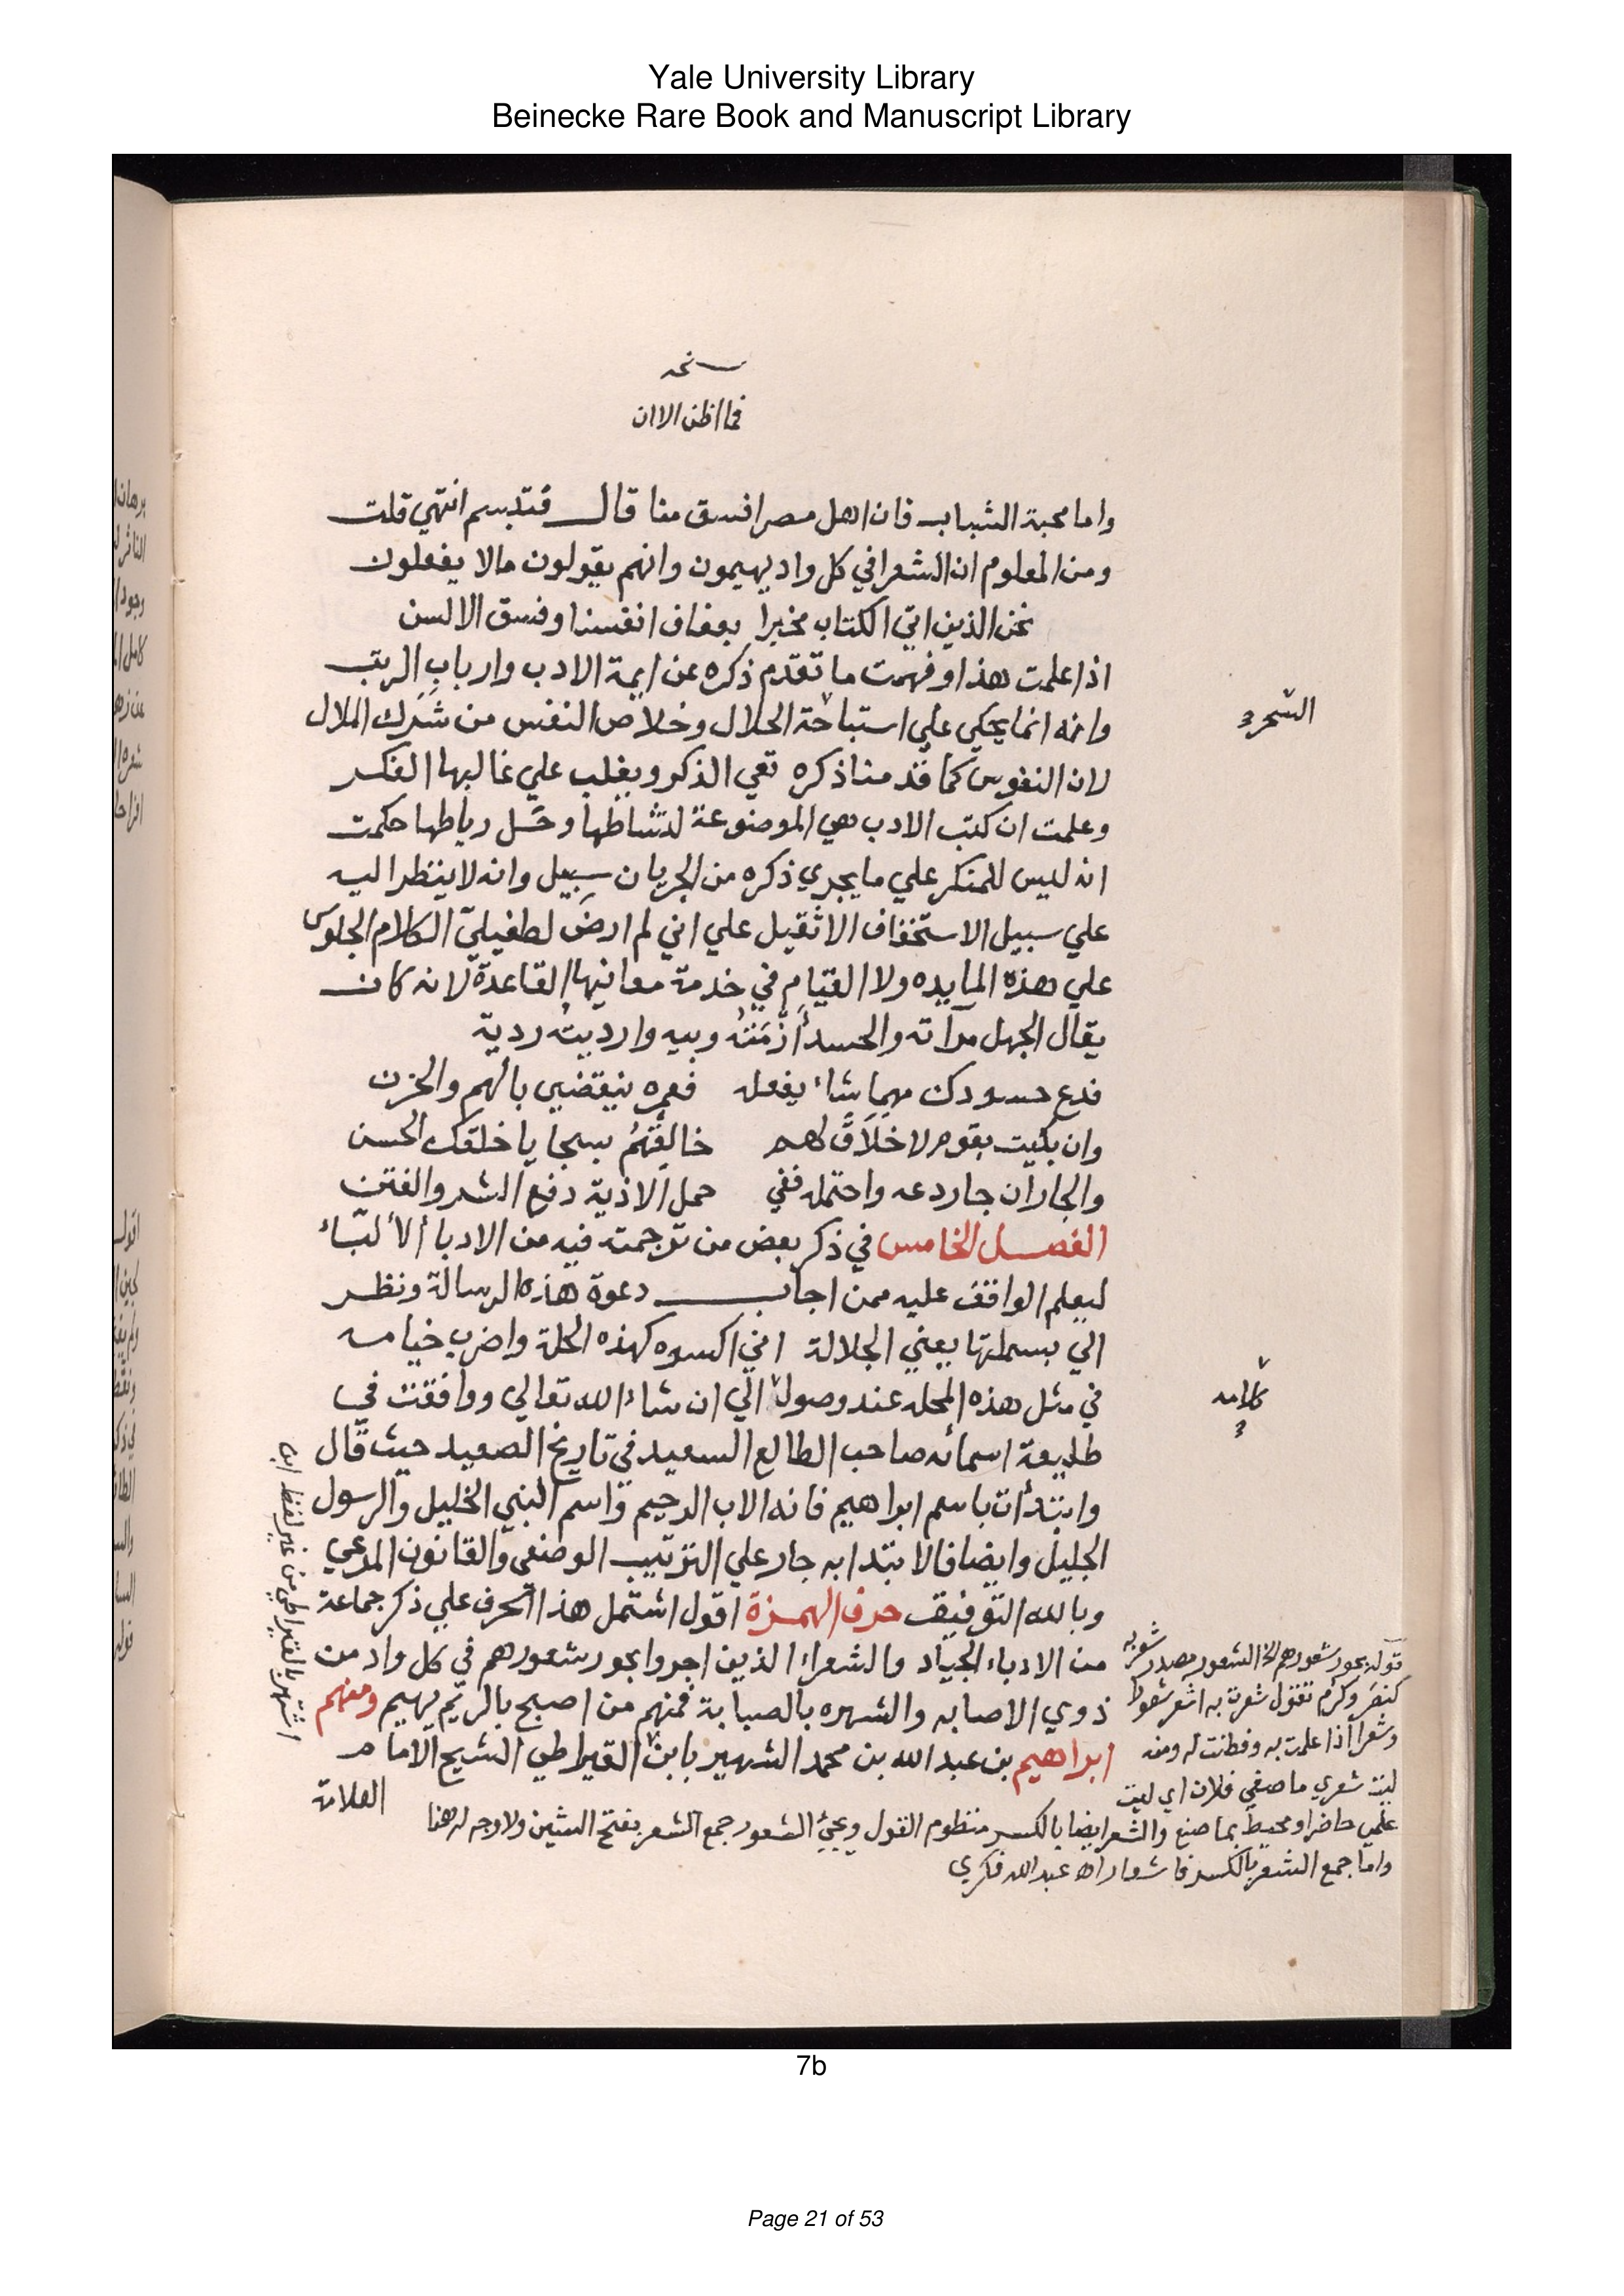 Yale University Library
Beinecke Rare Book and Manuscript Library
نسخه
فما اظن الا ان
واما محبة الشباب فان اهل مصر افسق منا قال فتبسم انتهي قلت
ومن المعلوم ان الشعرا في كل واد يهيمون وانهم يقولون مالا يفعلون
نحن الذين اتي الكتاب مخبرا بعفاف انفسنا وفسق الالسن
اذا علمت هذا وفهمت ما تقدم ذكره عن ايمة الادب وارباب الرتب
وانه انما يحكي علي استباحة الحلال وخلاص النفس من شرك الملال
السحر
لان النفوس كما قد منا ذكره تعي الذكر ويغلب علي غالبها الفكر
وعلمت ان كتب الادب هي الموضوعة لنشاطها وحل رباطها حكمت
انه ليس للمنكر علي ما يجري ذكره من الجريان سبيل وانه لا ينظر اليه
علي سبيل الاستخفاف الا ثقيل علي اني لم ارض لطفيلي الكلام الجلوس
علي هذه المايده ولا القيام في خدمة معانيها القاعدة لانه كان
يقال الجهل مرآته والحسد أزمنته وبيه وارديته ردية
فدع حسودك مهما شاء يفعله فعمره ينقضي بالهم والحزن
وان بليت بقوم لا خلاق لهم خالقتهم بسجايا خلقك الحسن
والجار ان جار دعه واحتمله ففي حمل الاذية دفع الشر والفتن
الفصل الخامس في ذكر بعض من ترجمت فيه من الادبا الألباء
ليعلم الواقف عليه ممن اجاب دعوة هذه الرسالة ونظر
الي بسملتها بعيني الجلالة اني اكسوه كهذه الحلة واضرب خيامه
في مثل هذه المحله عند وصول الي ان شاء الله تعالي ووافقت في
كلامه
طليعة اسمائه صاحب الطالع السعيد في تاريخ الصعيد حيث قال
وابتدأت باسم ابراهيم فانه الاب الرحيم واسم النبي الخليل والرسول
الجليل وايضا فالابتدا به جار علي الترتيب الوضعي والقانون المرعي
وبالله التوفيق حرف الهمزة اقول اشتمل هذا الحرف علي ذكر جماعة
من الادباء الجياد والشعراء الذين اجروا بحور شعورهم في كل واد من
ذوي الاصابه والشهره بالصبابة فمنهم من اصبح بالريم يهيم ومنهم
ابراهيم بن عبد الله بن محمد الشهير بابن القيراطي الشيخ الامام
العلامة
اشتهر بالقيراطي من غير لفظ ابن
قوله بحور شعورهم الخ الشعور مصدر شعر به
كنصر وكرم تقول شعرت به اشعر شعورا
وشعرا اذا علمت به وفطنت له ومنه
ليت شعري ما صنع فلان اي ليت
علمي حاضر او محيط بما صنع والشعر ايضا بالكسر منظوم القول ويجيء الشعور جمع الشعر بفتح الشين ولا وجه له هنا
واما جمع الشعر بالكسر فاشعار اه عبد الله فكري
7b
Page 21 of 53